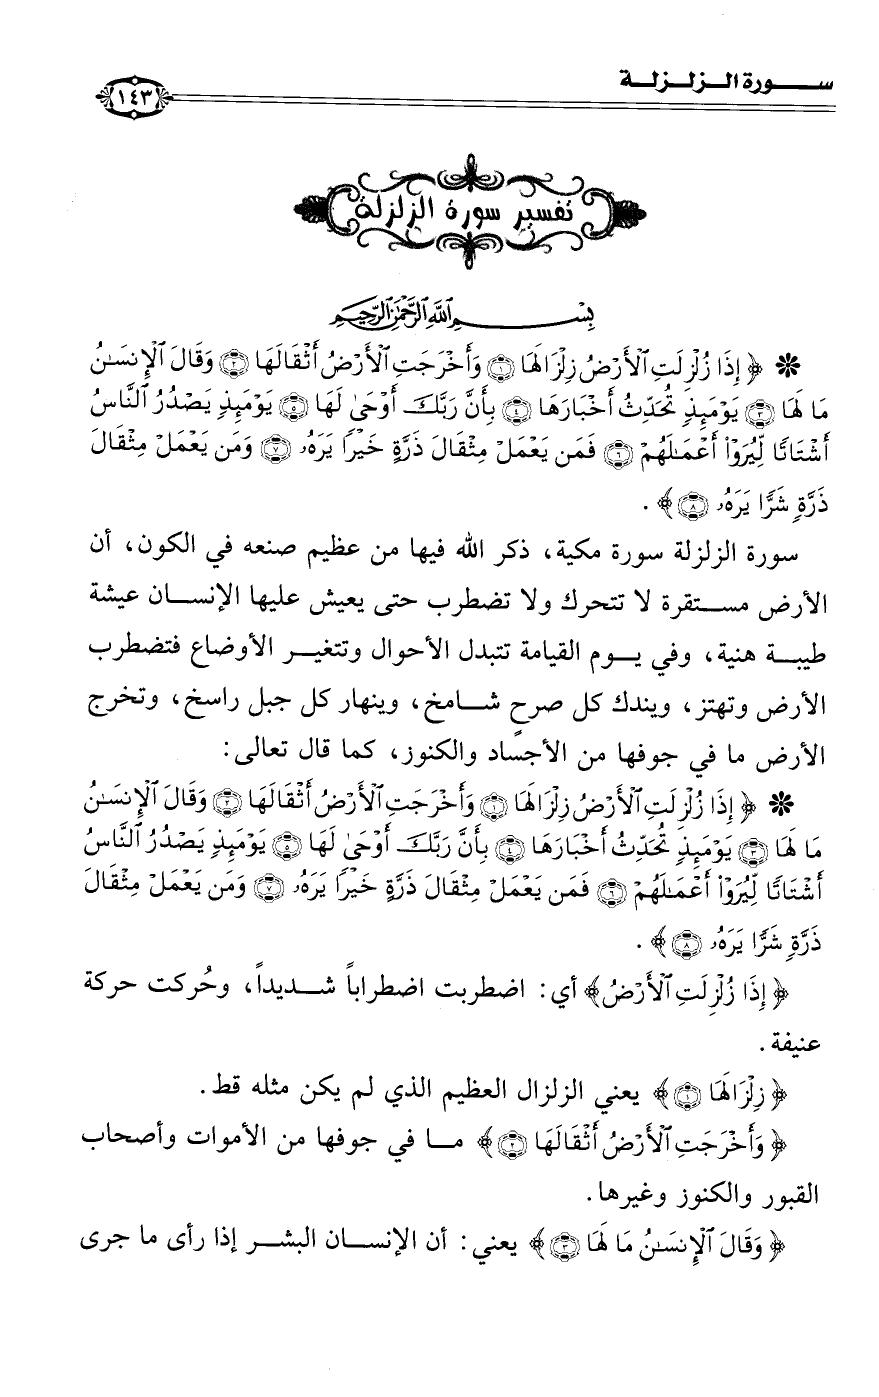 سورة الزلزلة
١٤٣
تفسير سورة الزلزلة
بِسْمِ اللَّهِ الرَّحْمَٰنِ الرَّحِيمِ
* ﴿ إِذَا زُلْزِلَتِ ٱلْأَرْضُ زِلْزَالَهَا ١ وَأَخْرَجَتِ ٱلْأَرْضُ أَثْقَالَهَا ٢ وَقَالَ ٱلْإِنسَٰنُ
مَا لَهَا ٣ يَوْمَئِذٍ تُحَدِّثُ أَخْبَارَهَا ٤ بِأَنَّ رَبَّكَ أَوْحَىٰ لَهَا ٥ يَوْمَئِذٍ يَصْدُرُ ٱلنَّاسُ
أَشْتَاتًا لِّيُرَوْا۟ أَعْمَٰلَهُمْ ٦ فَمَن يَعْمَلْ مِثْقَالَ ذَرَّةٍ خَيْرًا يَرَهُۥ ٧ وَمَن يَعْمَلْ مِثْقَالَ
ذَرَّةٍ شَرًّا يَرَهُۥ ٨ ﴾ .
سورة الزلزلة سورة مكية، ذكر الله فيها من عظيم صنعه في الكون، أن
الأرض مستقرة لا تتحرك ولا تضطرب حتى يعيش عليها الإنسان عيشة
طيبة هنية، وفي يوم القيامة تتبدل الأحوال وتتغير الأوضاع فتضطرب
الأرض وتهتز، ويندك كل صرحٍ شامخ، وينهار كل جبل راسخ، وتخرج
الأرض ما في جوفها من الأجساد والكنوز، كما قال تعالى:
* ﴿ إِذَا زُلْزِلَتِ ٱلْأَرْضُ زِلْزَالَهَا ١ وَأَخْرَجَتِ ٱلْأَرْضُ أَثْقَالَهَا ٢ وَقَالَ ٱلْإِنسَٰنُ
مَا لَهَا ٣ يَوْمَئِذٍ تُحَدِّثُ أَخْبَارَهَا ٤ بِأَنَّ رَبَّكَ أَوْحَىٰ لَهَا ٥ يَوْمَئِذٍ يَصْدُرُ ٱلنَّاسُ
أَشْتَاتًا لِّيُرَوْا۟ أَعْمَٰلَهُمْ ٦ فَمَن يَعْمَلْ مِثْقَالَ ذَرَّةٍ خَيْرًا يَرَهُۥ ٧ وَمَن يَعْمَلْ مِثْقَالَ
ذَرَّةٍ شَرًّا يَرَهُۥ ٨ ﴾ .
﴿ إِذَا زُلْزِلَتِ ٱلْأَرْضُ ﴾ أي: اضطربت اضطراباً شديداً، وحُركت حركة
عنيفة.
﴿ زِلْزَالَهَا ١ ﴾ يعني الزلزال العظيم الذي لم يكن مثله قط.
﴿ وَأَخْرَجَتِ ٱلْأَرْضُ أَثْقَالَهَا ٢ ﴾ ما في جوفها من الأموات وأصحاب
القبور والكنوز وغيرها.
﴿ وَقَالَ ٱلْإِنسَٰنُ مَا لَهَا ٣ ﴾ يعني: أن الإنسان البشر إذا رأى ما جرى